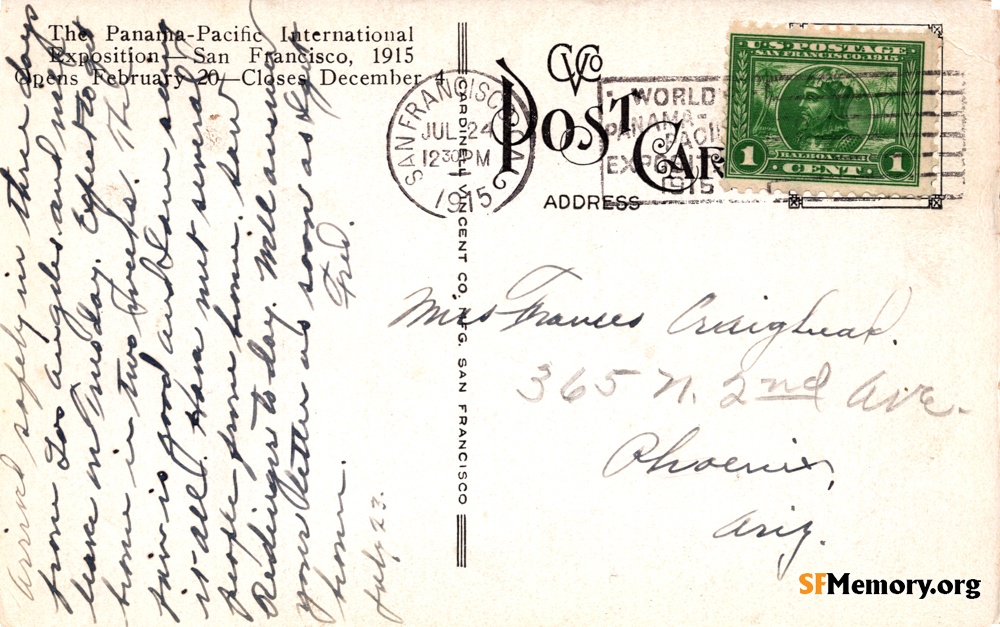 The Panama-Pacific International
Exposition—San Francisco, 1915
Opens February 20—Closes December 4
CVCo
POST CAR
ADDRESS
CARDINELL-VINCENT CO. MFG. SAN FRANCISCO
SAN FRANCISCO
JUL 24
12 30 PM
1915
WORLD
PANAMA-
PACI
EXPOSIT
1915
U.S. POSTAGE
SAN FRANCISCO 1915
BALBOA 1513
1 CENT 1
Arrived safely in three days
from Los Angeles and may
leave on Tuesday. Expect to be
home in two weeks. The
fair is good and
is all. Have met several
people from home. Saw
to day. Will answer
your letter as soon as I get
home.
Fred.
July 23.
Mrs Frances Craighead.
365 N. 2nd Ave.
Phoenix,
Ariz.
SFMemory.org